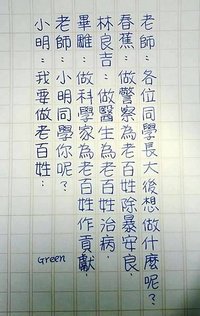 老師：各位同學長大後想做什麼呢？
春蕉：做警察為老百姓除暴安良．
林良吉：做醫生為老百姓治病．
畢雕：做科學家為老百姓作貢獻．
老師：小明同學你呢？
小明：我要做老百姓．
Green